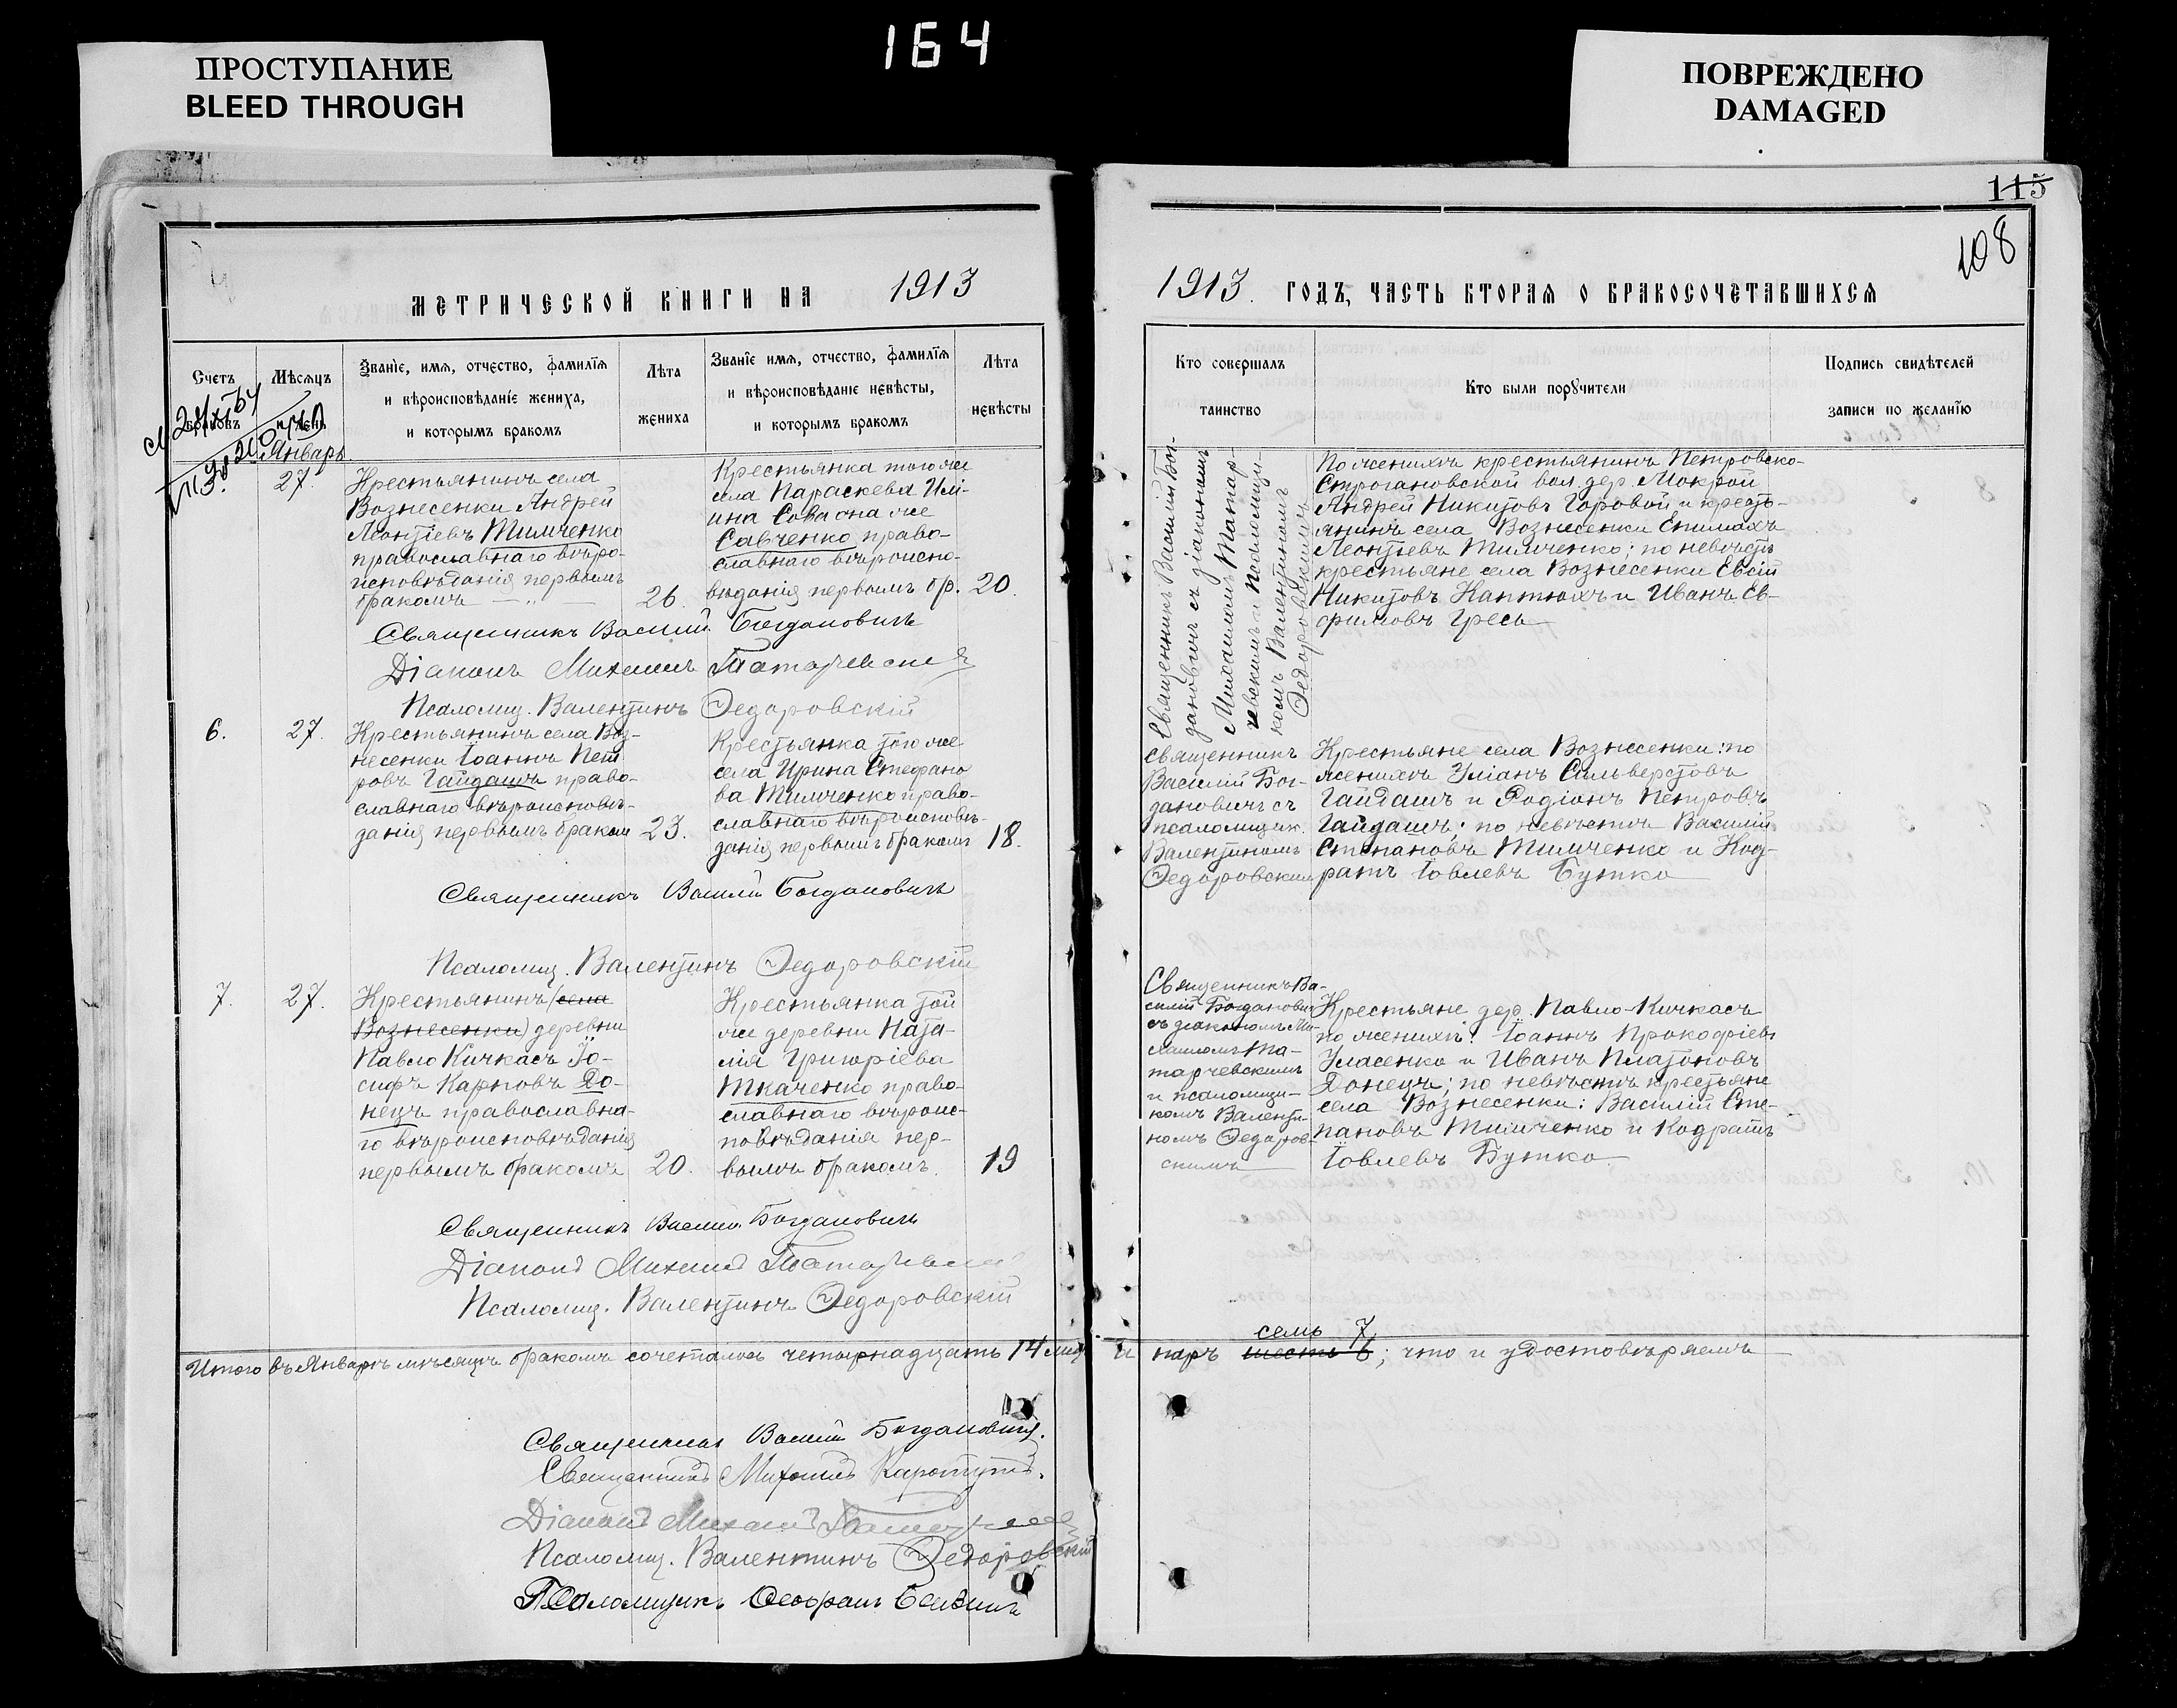 164
ПРОСТУПАНИЕ
BLEED THROUGH
ПОВРЕЖДЕНО
DAMAGED
115
108
МЕТРИЧЕСКОЙ КНИГИ НА 1913
1913. ГОДЪ, ЧАСТЬ ВТОРАЯ О БРАКОСОЧЕТАВШИХСЯ
Счетъ
браковъ
Мѣсяцъ
и день
Званіе, имя, отчество, фамилія
и вѣроисповѣданіе жениха,
и которымъ бракомъ
Лѣта
жениха
Званіе имя, отчество, фамилія
и вѣроисповѣданіе невѣсты,
и которымъ бракомъ
Лѣта
невѣсты
Кто совершалъ
таинство
Кто были поручители
Подпись свидѣтелей
записи по желанію
Январь.
27.
Крестьянинъ села
Вознесенки Андрей
Леонтіевъ Тимченко
православнаго вѣро-
исповѣданія первымъ
бракомъ — „ —
26.
Крестьянка того же
села Параскева Илі-
ина Сова она же
Савченко, право-
славнаго вѣроиспо-
вѣданія первымъ бр.
20.
Священникъ Василій Бог-
дановичъ съ діакономъ
Михаиломъ Татар-
чевскимъ и псаломщи-
комъ Валентиномъ
Федоровскимъ
По женихѣ крестьянинъ Петровско-
Строгановской вол. дер. Мокрой
Андрей Никитовъ Горовой и кресть-
янинъ села Вознесенки Епимахъ
Леонтіевъ Тимченко; по невѣстѣ
крестьяне села Вознесенки Евсій
Никитовъ Каптюхъ и Иванъ Ев-
фимовъ Гресь
Священникъ Василій Богдановичъ
Діаконъ Михаилъ Татарчевскій
Псаломщ. Валентинъ Федоровскій
6.
27.
Крестьянинъ села Воз-
несенки Іоаннъ Пет
ровъ Гайдашъ право-
славнаго вѣроисповѣ-
данія первымъ браком
23.
Крестьянка того же
села Ирина Стефано
ва Тимченко право-
славнаго вѣроисповѣ-
данія первымъ бракомъ
18.
Священникъ
Василій Бог-
дановичъ съ
псаломщик.
Валентиномъ
Федоровским
Крестьяне села Вознесенки: по
женихѣ Уліанъ Сильверстовъ
Гайдашъ и Родіонъ Петровъ
Гайдашъ; по невѣстѣ Василій
Степановъ Тимченко и Код-
ратъ Іовлевъ Бутко
Священникъ Василій Богдановичъ
Псаломщ. Валентинъ Федоровскій
7.
27.
Крестьянинъ (села
Вознесенки) деревни
Павло Кичкасъ Іо-
сифъ Карповъ До-
нецъ православна-
го вѣроисповѣданія
первымъ бракомъ
20.
Крестьянка той
же деревни Ната-
лія Григоріева
Ткаченко право-
славнаго вѣроис-
повѣданія пер-
вымъ бракомъ.
19
Священникъ Ва-
силій Богданович
съ діакономъ Ми-
хаиломъ Та-
тарчевскимъ
и псаломщи-
комъ Валенти-
номъ Федоров-
скимъ
Крестьяне дер. Павло-Кичкасъ
по женихѣ: Іоаннъ Прокофіевъ
Уласенко и Иванъ Платоновъ
Донецъ; по невѣстѣ крестьяне
села Вознесенки: Василій Сте-
пановъ Тимченко и Кодратъ
Іовлевъ Бутко.
Священникъ Василій Богдановичъ
Діаконъ Михаилъ Татарчевскій
Псаломщ. Валентинъ Федоровскій
семь 7
Итого въ Январѣ мѣсяцѣ бракомъ сочеталось четырнадцать 14 лиц и паръ шесть 6; что и удостовѣряемъ
Священникъ Василій Богдановичъ.
Священникъ Михаилъ
Діаконъ Михаилъ
Псаломщ. Валентинъ Федоровскій
Псаломщикъ